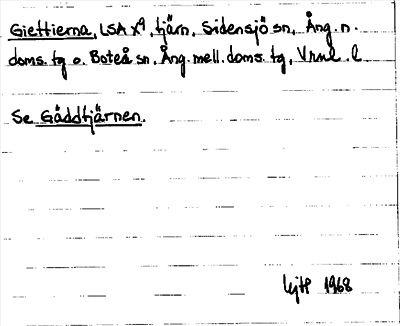 Giettierna, LSA X⁹, tjärn, Sidensjö sn, Ång. n.
doms. tg o. Boteå sn, Ång. mell. doms. tg, Vrml. l
Se Gäddtjärnen.
1968